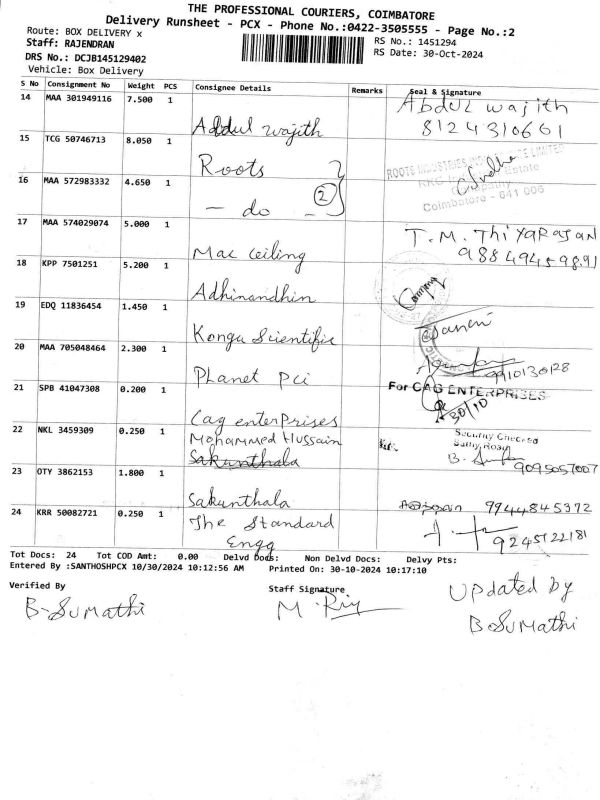 THE PROFESSIONAL COURIERS, COIMBATORE
Delivery Runsheet - PCX - Phone No.:0422-3505555 - Page No.:2
Route: BOX DELIVERY x
RS No.: 1451294
Staff: RAJENDRAN
RS Date: 30-Oct-2024
DRS No.: DCJB145129402
Vehicle: Box Delivery
S No Consignment No Weight PCS Consignee Details Remarks Seal & Signature
14 MAA 301949116 7.500 1 Abdul wajith Abdul wajith
8124310661
15 TCG 50746713 8.050 1 Roots
ROOTS INDUSTRIES LIMITED
Estate
16 MAA 572983332 4.650 1 - do - (2)
Coimbatore - 641 006
17 MAA 574029074 5.000 1 Mac Ceiling T.M. Thiyarajan
9884945989
18 KPP 7501251 5.200 1 Adhinandhin
19 EDQ 11836454 1.450 1 Kongu Scientific
20 MAA 705048464 2.300 1 Planet pci
9910130128
21 SPB 41047308 0.200 1 Cag enterprises
For CAG ENTERPRISES
30/10
22 NKL 3459309 0.250 1 Mohammed Hussain
Sakunthala
Security Checked
9095057007
23 OTY 3862153 1.800 1 Sakunthala 9944845372
24 KRR 50082721 0.250 1 The Standard
Engg
9245722181
Tot Docs: 24 Tot COD Amt: 0.00 Delvd Docs: Non Delvd Docs: Delvy Pts:
Entered By :SANTHOSHPCX 10/30/2024 10:12:56 AM Printed On: 30-10-2024 10:17:10
Verified By Staff Signature
B-Sumathi
Updated by
B.Sumathi